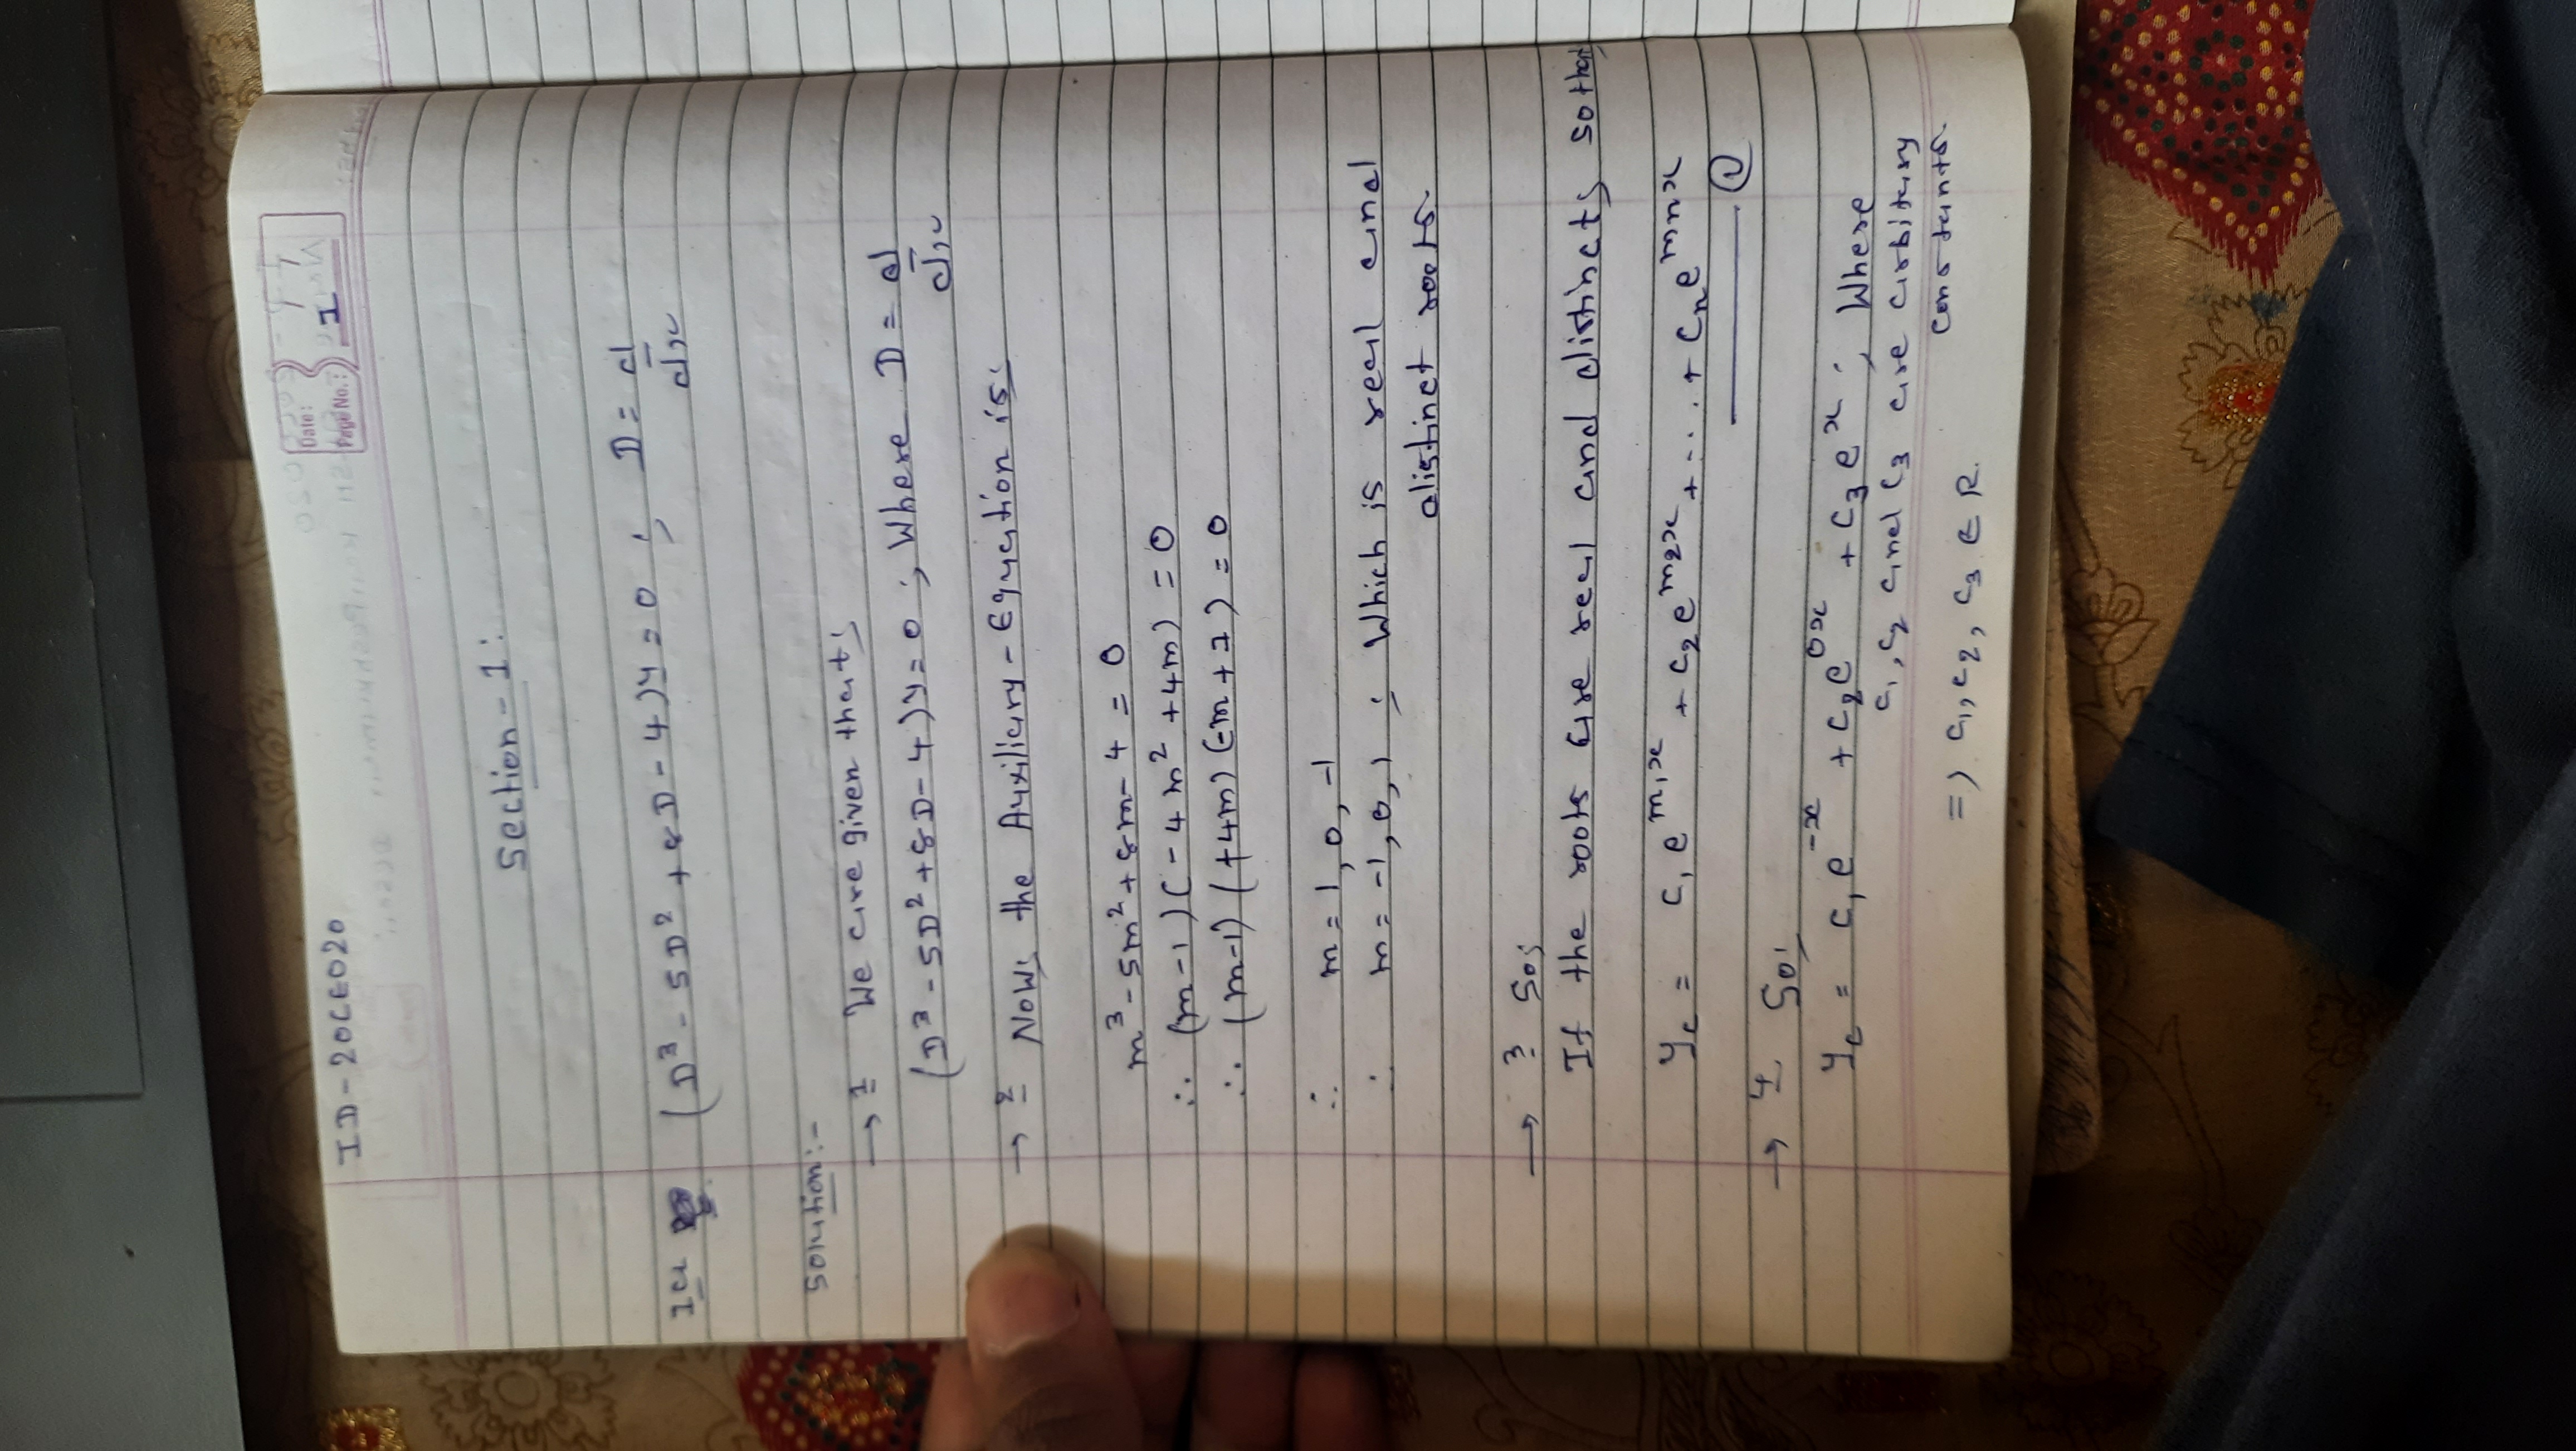 ID-20CE020
Date: / /
Page No.: 1
Section-1:
1a (D³-5D²+8D-4)y=0 ; D = d/dx
Solution:-
→ 1 We are given that;
(D³-5D²+8D-4)y=0 ; Where D = d/dx
→ 2 Now; the Auxiliary-Equation is:
m³-5m²+8m-4 = 0
∴ (m-1)(-4m²+4m) = 0
∴ (m-1)(+4m)(-m+1) = 0
∴ m = 1, 0, -1
∴ m = -1, 0, 1 ; Which is real and
distinct roots.
→ 3 So;
If the roots are real and distincts so that;
y_c = c₁e^{m₁x} + c₂e^{m₂x} + .... + cₙe^{mₙx}
①
→ 4 So;
y_c = c₁e^{-x} + c₂e^{0x} + c₃e^{x} ; Where
c₁, c₂ and c₃ are arbitary
constants.
=> c₁, c₂, c₃ ∈ R.